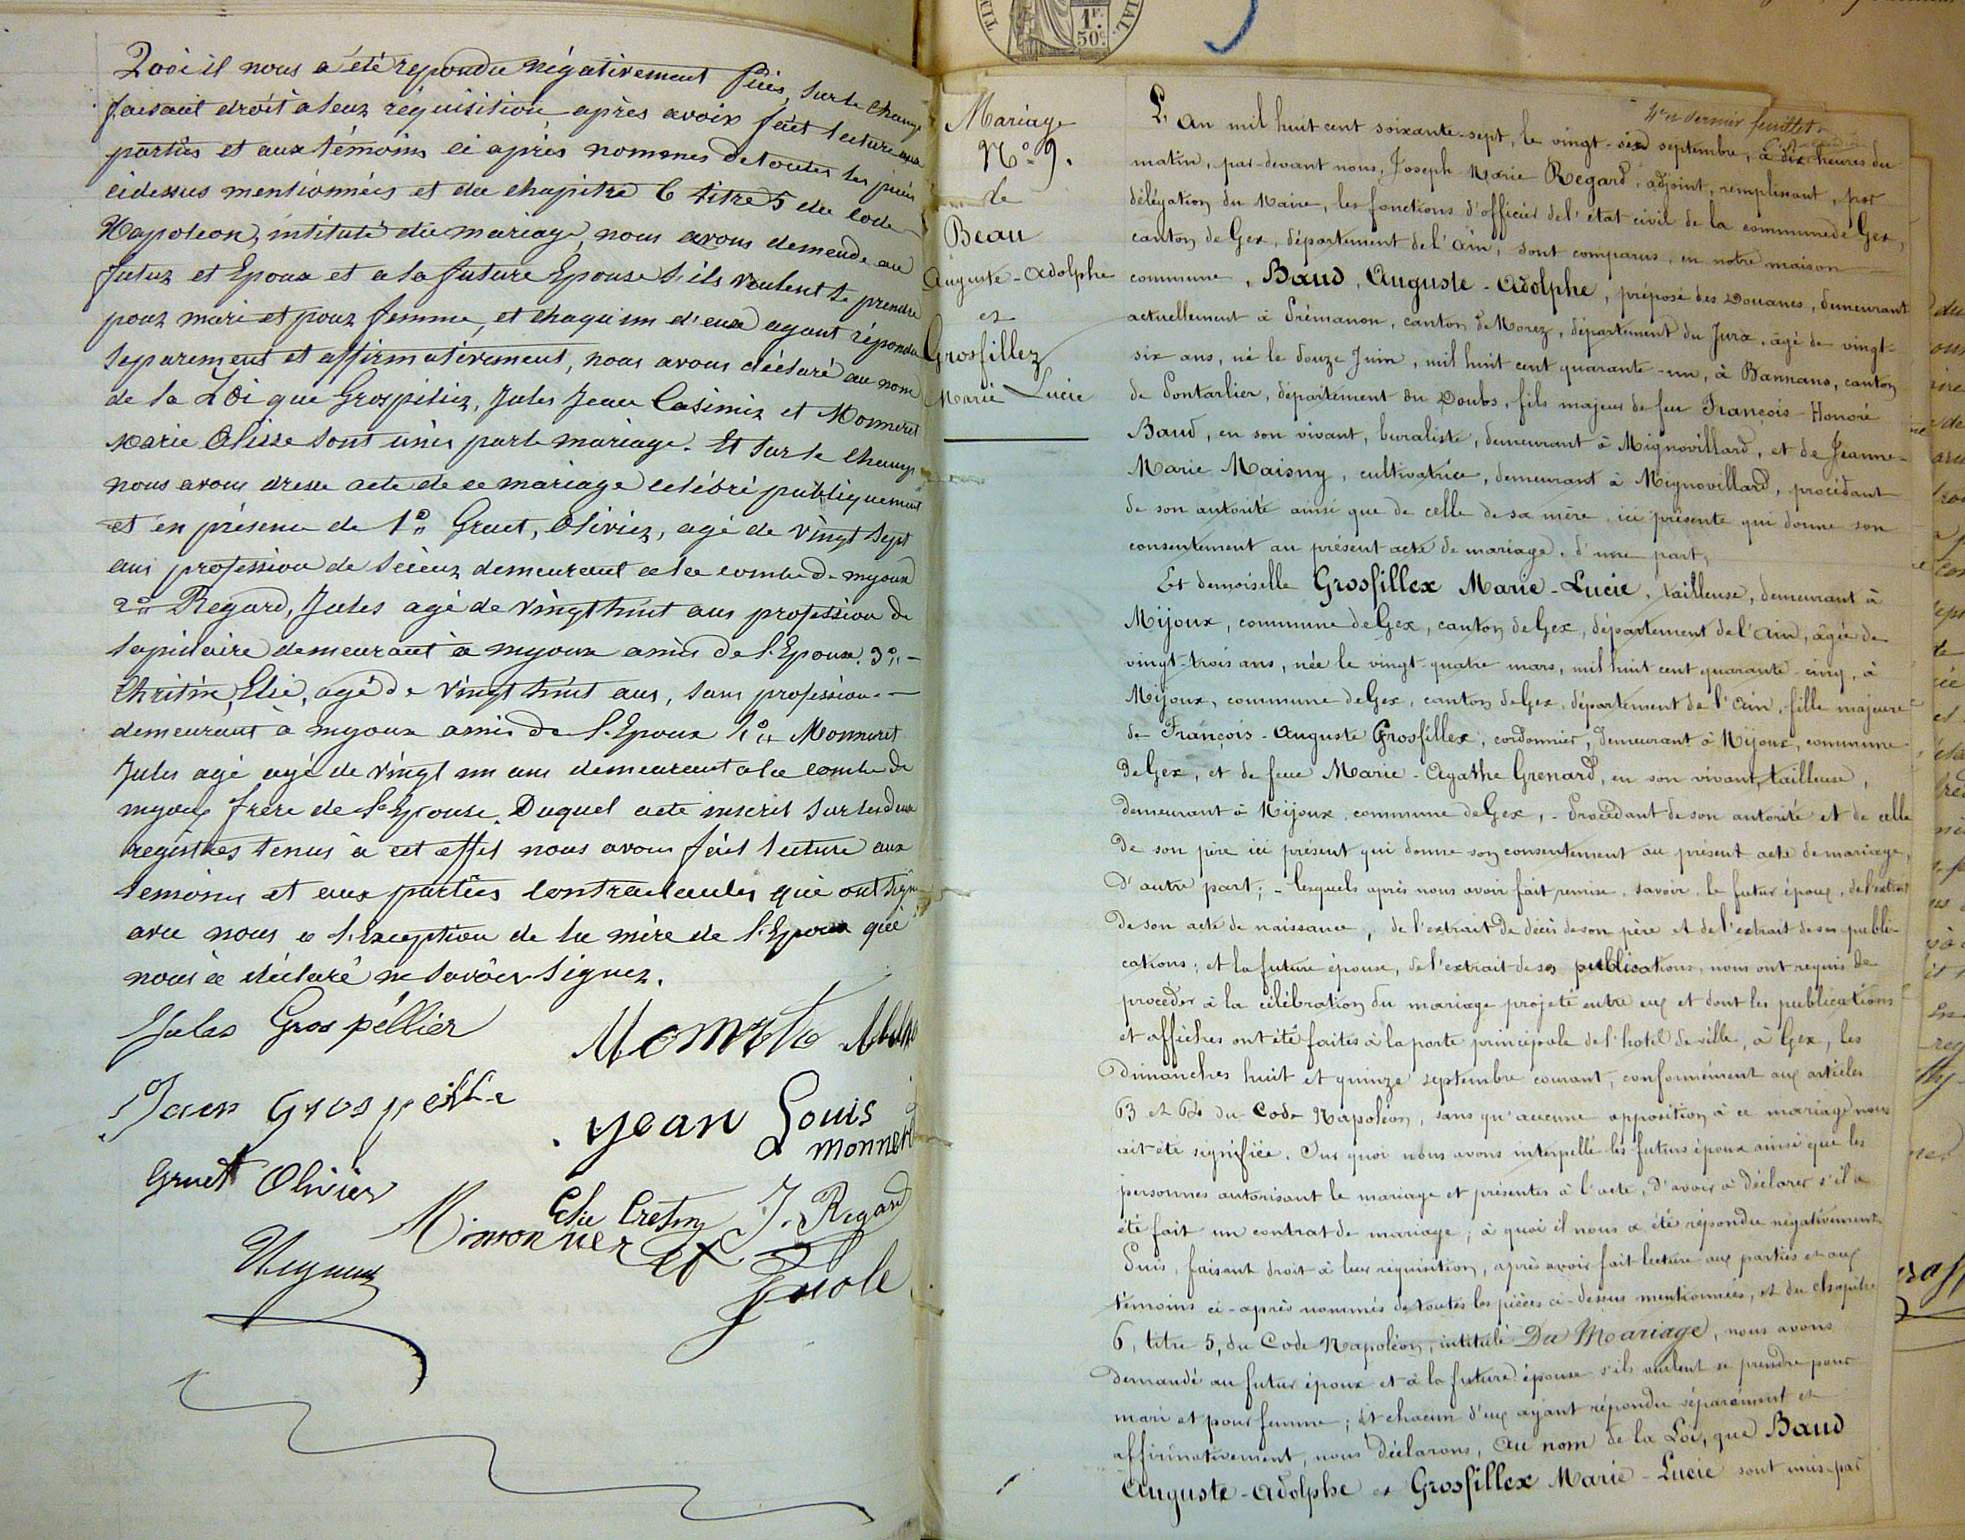 Quoi il nous a été repondu négativement Puis, sur le champ
faisant droit a leur réquisition après avoir fait lecture aux
parties et aux témoins ci après nommés de toutes les pièces
ci dessus mentionnées et du chapitre 6 titre 5 du Code
Napoleon, intitulé du mariage, nous avons demendé au
futur et Epoux et a la future Epouse s'ils veulent se prendre
pour mari et pour femme, et chaqu'un d'eux ayant répondu
separement et affirmativement, nous avons déclaré au nom
de la Loi que Grospiliez, Jules Jean Casimir et Monneret
Marie Elisse sont unis par le mariage. Et sur le Champ
nous avons dressé acte de ce mariage célébré publiquement
et en présence de 1° Gruet, Olivier, agé de vingt sept
ans profession de scieur demeurant a la combe de myoux
2° Regard, Jules agé de vingt huit ans profession de
lapidaire demeurant à myoux amis de l'Epoux. 3°
Elie, agé de vingt huit ans, sans profession
demeurant à myoux amis de l'Epoux 4° Monneret
Jules agé agé de vingt un ans demeurant a la combe de
myoux frère de l'Epouse. Duquel acte inscrit sur les deux
registres tenus à cet effet nous avons fait lecture aux
temoins et aux parties contractantes qui ont signé
avec nous a l'exception de la mère de l'Epoux qui
nous a déclaré ne savoir signer.
Jules Grospéllier
Jean Grospellie
Jean Louis
monneret
Gruet Olivier
Elie Cretin J. Regard
M. monneret
Jules
1F.
50c.
4e et dernier feuillet
Mariage
N° 9.
de
Beau
Auguste-Adolphe
et
Grosfillez
Marie Lucie
L'An mil huit cent soixante-sept, le vingt-six septembre, à dix heures du
matin, par-devant nous, Joseph-Marie Regard, adjoint, remplissant, par
délégation du Maire, les fonctions d'officier de l'état civil de la commune de Gex,
canton de Gex, département de l'Ain, sont comparus, en notre maison
commune, Baud, Auguste-Adolphe, préposé des Douanes, demeurant
actuellement à Prémanon, canton de Morez, département du Jura, âgé de vingt-
six ans, né le douze Juin, mil huit cent quarante-un, à Bannans, canton
de Pontarlier, département du Doubs, fils majeur de feu François-Honoré
Baud, en son vivant, buraliste, demeurant à Mignovillard, et de Jeanne-
Marie Maisny, cultivatrice, demeurant à Mignovillard, procédant
de son autorité ainsi que de celle de sa mère, ici présente qui donne son
consentement au présent acte de mariage, d'une part;
Et demoiselle Grosfillex Marie-Lucie, tailleuse, demeurant à
Mijoux, commune de Gex, canton de Gex, département de l'Ain, âgée de
vingt-trois ans, née le vingt-quatre mars, mil huit cent quarante-cinq, à
Mijoux, commune de Gex, canton de Gex, département de l'Ain, fille majeure
de François-Auguste Grosfillex, cordonnier, demeurant à Mijoux, commune
de Gex, et de feue Marie-Agathe Grenard, en son vivant, tailleuse,
demeurant à Mijoux, commune de Gex, - Procédant de son autorité et de celle
de son père ici présent qui donne son consentement au présent acte de mariage,
d'autre part; - lesquels après nous avoir fait remise, savoir, le futur époux, de l'extrait
de son acte de naissance, de l'extrait de décès de son père et de l'extrait de ses publi-
cations; et la future épouse, de l'extrait de ses publications, nous ont requis de
procéder à la célébration du mariage projeté entre eux et dont les publications
et affiches ont été faites à la porte principale de l'hotel de ville, à Gex, les
Dimanches huit et quinze septembre courant, conformément aux articles
63 et 64 du Code Napoléon, sans qu'aucune opposition à ce mariage nous
ait été signifiée. Sur quoi nous avons interpellé les futurs époux ainsi que les
personnes autorisant le mariage et présentes à l'acte, d'avoir à déclarer s'il a
été fait un contrat de mariage; à quoi il nous a été répondu négativement.
Puis, faisant droit à leur réquisition, après avoir fait lecture aux parties et aux
témoins ci-après nommés de toutes les pièces ci-dessus mentionnées, et du chapitre
6, titre 5, du Code Napoléon, intitulé Du Mariage, nous avons
demandé au futur époux et à la future épouse s'ils veulent se prendre pour
mari et pour femme; et chacun d'eux ayant répondu séparément et
affirmativement, nous déclarons, au nom de la Loi, que Baud
Auguste-Adolphe et Grosfillex Marie-Lucie sont unis par